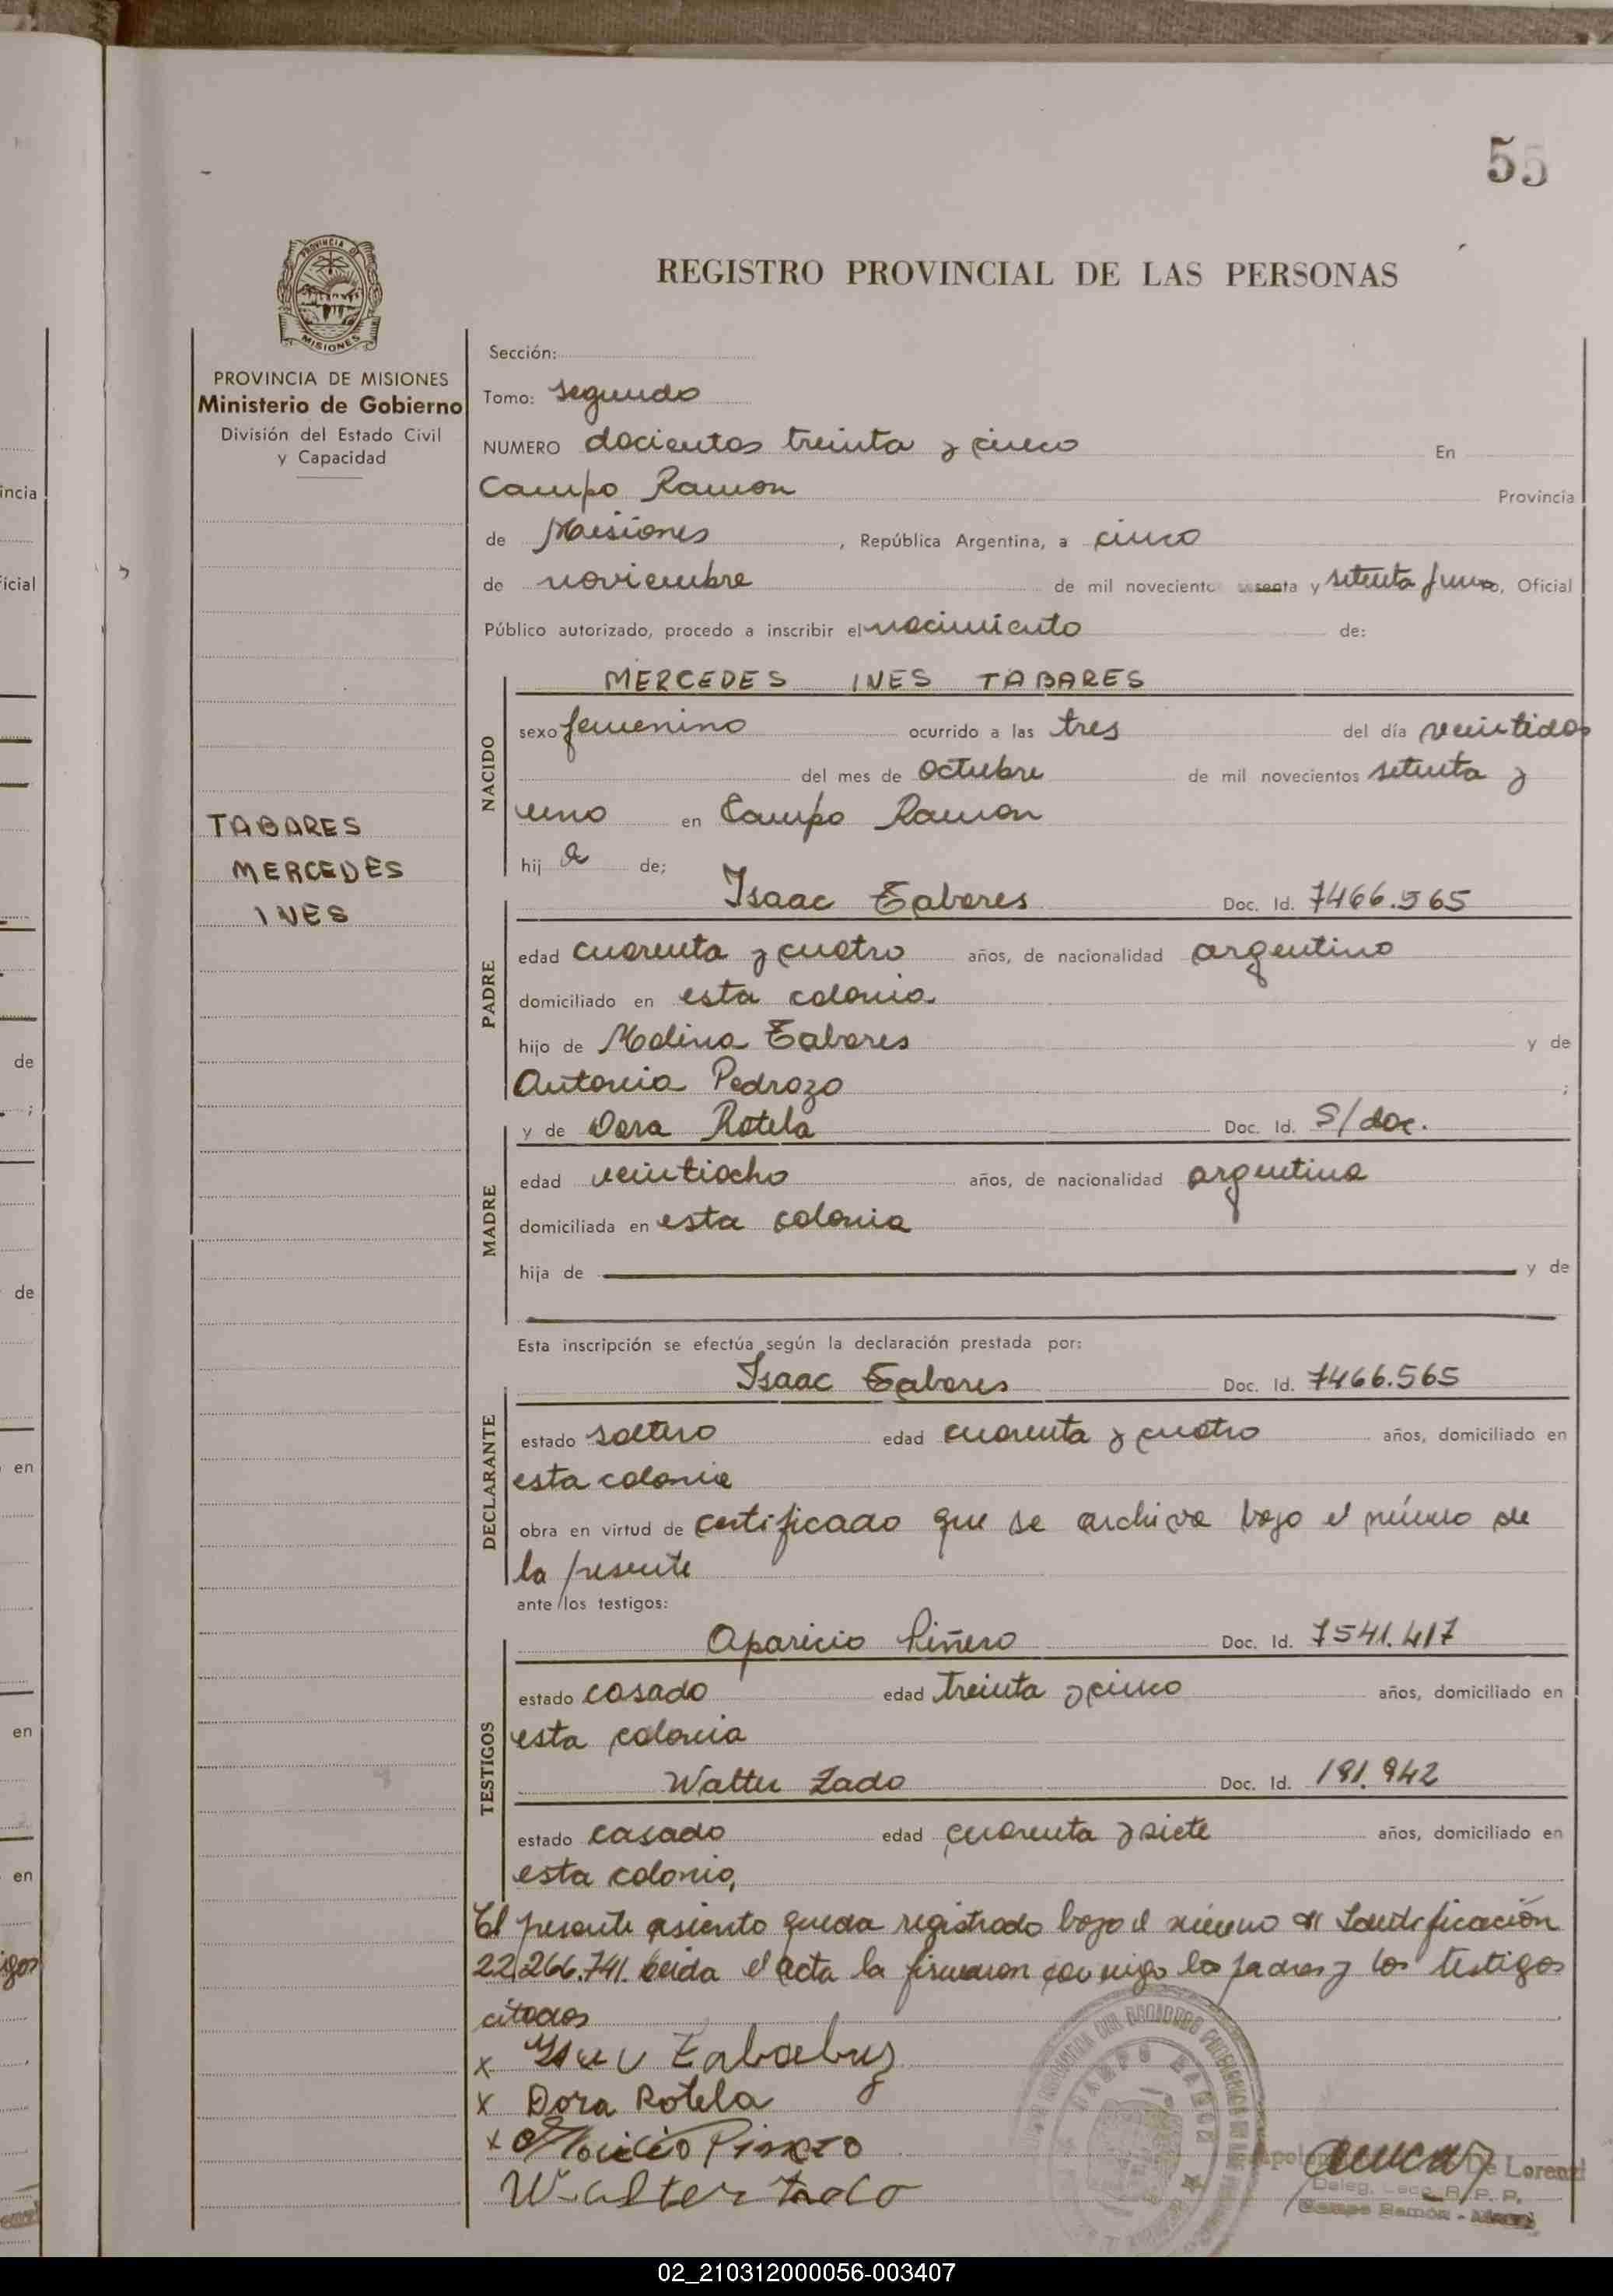 55
REGISTRO PROVINCIAL DE LAS PERSONAS
PROVINCIA DE
MISIONES
PROVINCIA DE MISIONES
Ministerio de Gobierno
División del Estado Civil
y Capacidad
TABARES
MERCEDES
INES
Sección:
Tomo: segundo
NUMERO docientos treinta y cinco En
Campo Ramon Provincia
de Misiones, República Argentina, a cinco
de noviembre de mil noveciento y setenta y uno, Oficial
Público autorizado, procedo a inscribir el nacimiento de:
NACIDO
MERCEDES INES TABARES
sexo femenino ocurrido a las tres del día veintidos
del mes de octubre de mil novecientos setenta y
uno en Campo Ramon
hij a de;
PADRE
Isaac Tabares Doc. Id. 7466.565
edad cuarenta y cuatro años, de nacionalidad argentino
domiciliado en esta colonia
hijo de Molina Tabares y de
Antonia Pedrozo ;
MADRE
y de Dora Rotela Doc. Id. S/doc.
edad veintiocho años, de nacionalidad argentina
domiciliada en esta colonia
hija de y de
Esta inscripción se efectúa según la declaración prestada por:
DECLARANTE
Isaac Tabares Doc. Id. 7466.565
estado soltero edad cuarenta y cuatro años, domiciliado en
esta colonia
obra en virtud de certificado que se archiva bajo el número de
la presente
ante los testigos:
TESTIGOS
Aparicio Piñero Doc. Id. 7541.417
estado casado edad treinta y cinco años, domiciliado en
esta colonia
Walter Zado Doc. Id. 191.942
estado casado edad cuarenta y siete años, domiciliado en
esta colonia,
El presente asiento queda registrado bajo el número de Identificación
22.266.741. Leida el acta la firmaron conmigo los padres y los testigos
citados
x
x Dora Rotela
x Piñero
Walter
CAMPO RAMON
De Lorenzi
Deleg. R. P. P.
Campo Ramón -
02_210312000056-003407